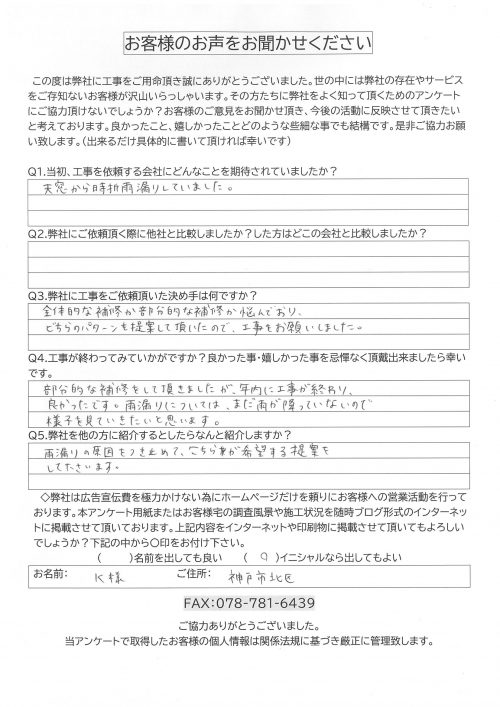 お客様のお声をお聞かせください
この度は弊社に工事をご用命頂き誠にありがとうございました。世の中には弊社の存在やサービス
をご存知ないお客様が沢山いらっしゃいます。その方たちに弊社をよく知って頂くためのアンケート
にご協力頂けないでしょうか？お客様のご意見をお聞かせ頂き、今後の活動に反映させて頂きたい
と考えております。良かったこと、嬉しかったことどのような些細な事でも結構です。是非ご協力お願
い致します。（出来るだけ具体的に書いて頂ければ幸いです）
Q1.当初、工事を依頼する会社にどんなことを期待されていましたか？
天窓から時折雨漏りしていました。
Q2.弊社にご依頼頂く際に他社と比較しましたか？した方はどこの会社と比較しましたか？
Q3.弊社に工事をご依頼頂いた決め手は何ですか？
全体的な補修か部分的な補修か悩んでおり、
どちらのパターンを提案して頂いたので、工事をお願いしました。
Q4.工事が終わってみていかがですか？良かった事・嬉しかった事を忌憚なく頂戴出来ましたら幸い
です。
部分的な補修をして頂きましたが、年内に工事が終わり、
良かったです。雨漏りについては、まだ雨が降っていないので
様子を見ていきたいと思います。
Q5.弊社を他の方に紹介するとしたらなんと紹介しますか？
雨漏りの原因をつき止めて、こちら側が希望する提案を
してくださいます。
◇弊社は広告宣伝費を極力かけない為にホームページだけを頼りにお客様への営業活動を行って
おります。本アンケート用紙またはお客様宅の調査風景や施工状況を随時ブログ形式のインターネッ
トに掲載させて頂いております。上記内容をインターネットや印刷物に掲載させて頂いてもよろしい
でしょうか？下記の中から〇印をお付け下さい。
（　）名前を出しても良い　（○）イニシャルなら出してもよい
お名前：　K様　ご住所：　神戸市北区
FAX：078-781-6439
ご協力ありがとうございました。
当アンケートで取得したお客様の個人情報は関係法規に基づき厳正に管理致します。